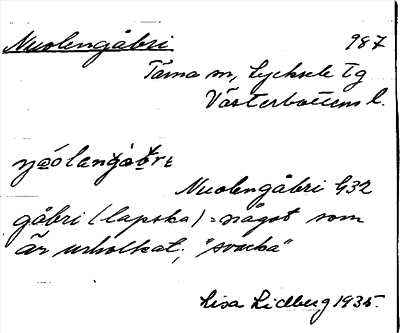 Nuolengåbri 987
Tärna sn, Lycksele Tg
Västerbottens l.
Nuolengåbri G32
gåbri (lapska) = något som
är urholkat; "svacka"
Lisa Lidberg 1935.